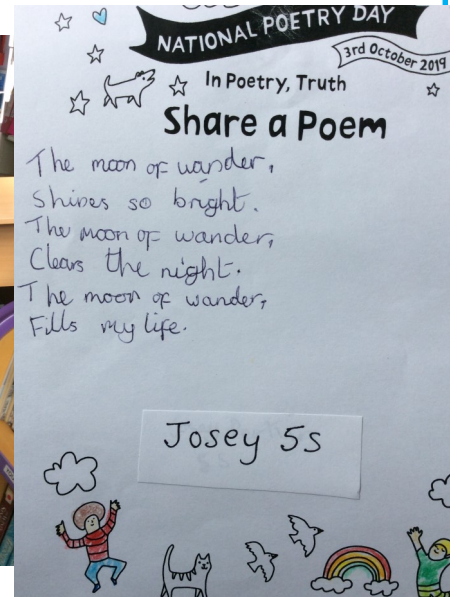 NATIONAL POETRY DAY
3rd October 2019
In Poetry, Truth
Share a Poem
The moon of wander,
Shines so bright.
The moon of wander,
Clears the night.
The moon of wander,
Fills my life.
Josey 5s